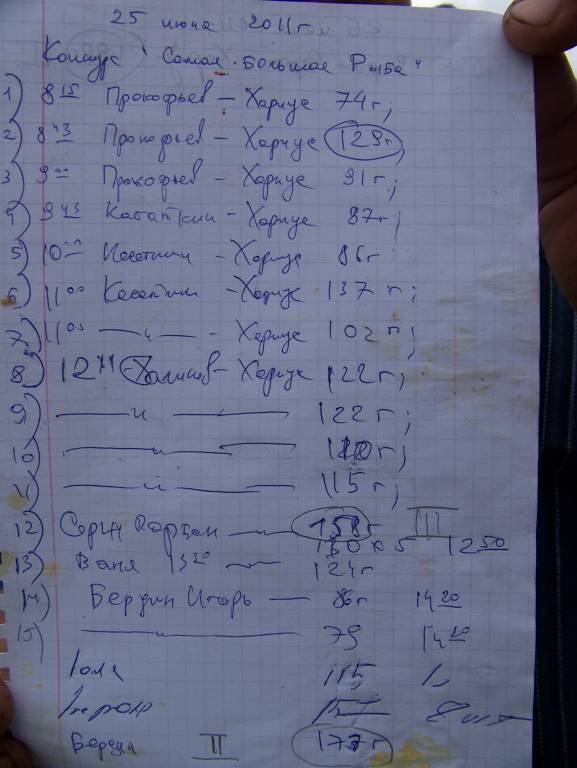 25 июня 2011г
Конкурс "Самая Большая Рыба"
1) 8 15 Прокофьев – Хариус 74г;
2) 8 43 Прокофьев – Хариус 129г;
3) 9 00 Прокофьев – Хариус 91г;
4) 9 43 Касаткин – Хариус 87г;
5) 10 – Хариус 86г
6) 11 00 Касаткин – Хариус 137г;
7) 11 05 — " — – Хариус 102г;
8) 12 11 – Хариус 122г;
9) — " — 122г;
10) — " —
11) — " — 115г;
12) 158г III
12 50
13) Ваня 13 20 — 124г
14) Бердин Игорь — 86г 14 20
15) — 79 14 20
115
Бердин II 177г